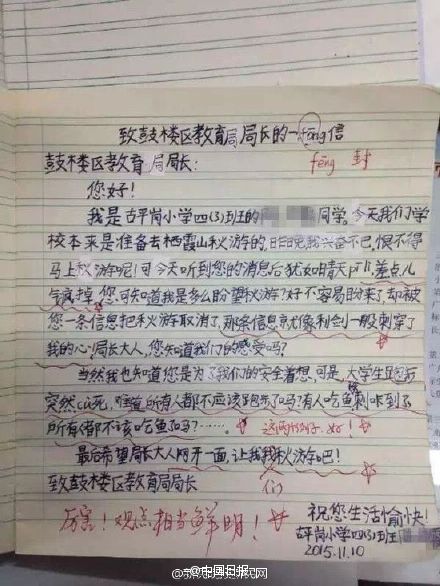 致鼓楼区教育局局长的一fōng信
fēng 封
鼓楼区教育局局长:
您好!
我是古平岗小学四(3)班的 同学。今天我们学
校本来是准备去栖霞山秋游的,昨晚我兴奋不已,恨不得
马上秋游呢!可今天听到您的消息后犹如晴天pī lì,差点儿
气疯掉,您可知道我是多么盼望秋游?好不容易盼来了,却被
您一条信息把秋游取消了,那条信息就像利剑一般刺穿了
我的心!局长大人,您知道我们的感受吗?
当然我也知道您是为了我们的安全着想,可是,大学生跑步
突然cù死,难道所有人都不应该跑步了吗?有人吃鱼被刺咔到了
所有都不该吃鱼了吗?……。 这两个例子,好!
最后希望局长大人网开一面,让我秋游吧!
们
致鼓楼区教育局局长
厉害!观点相当鲜明!
祝您生活愉快!
古平岗小学四(3)班
2015.11.10
@中国日报